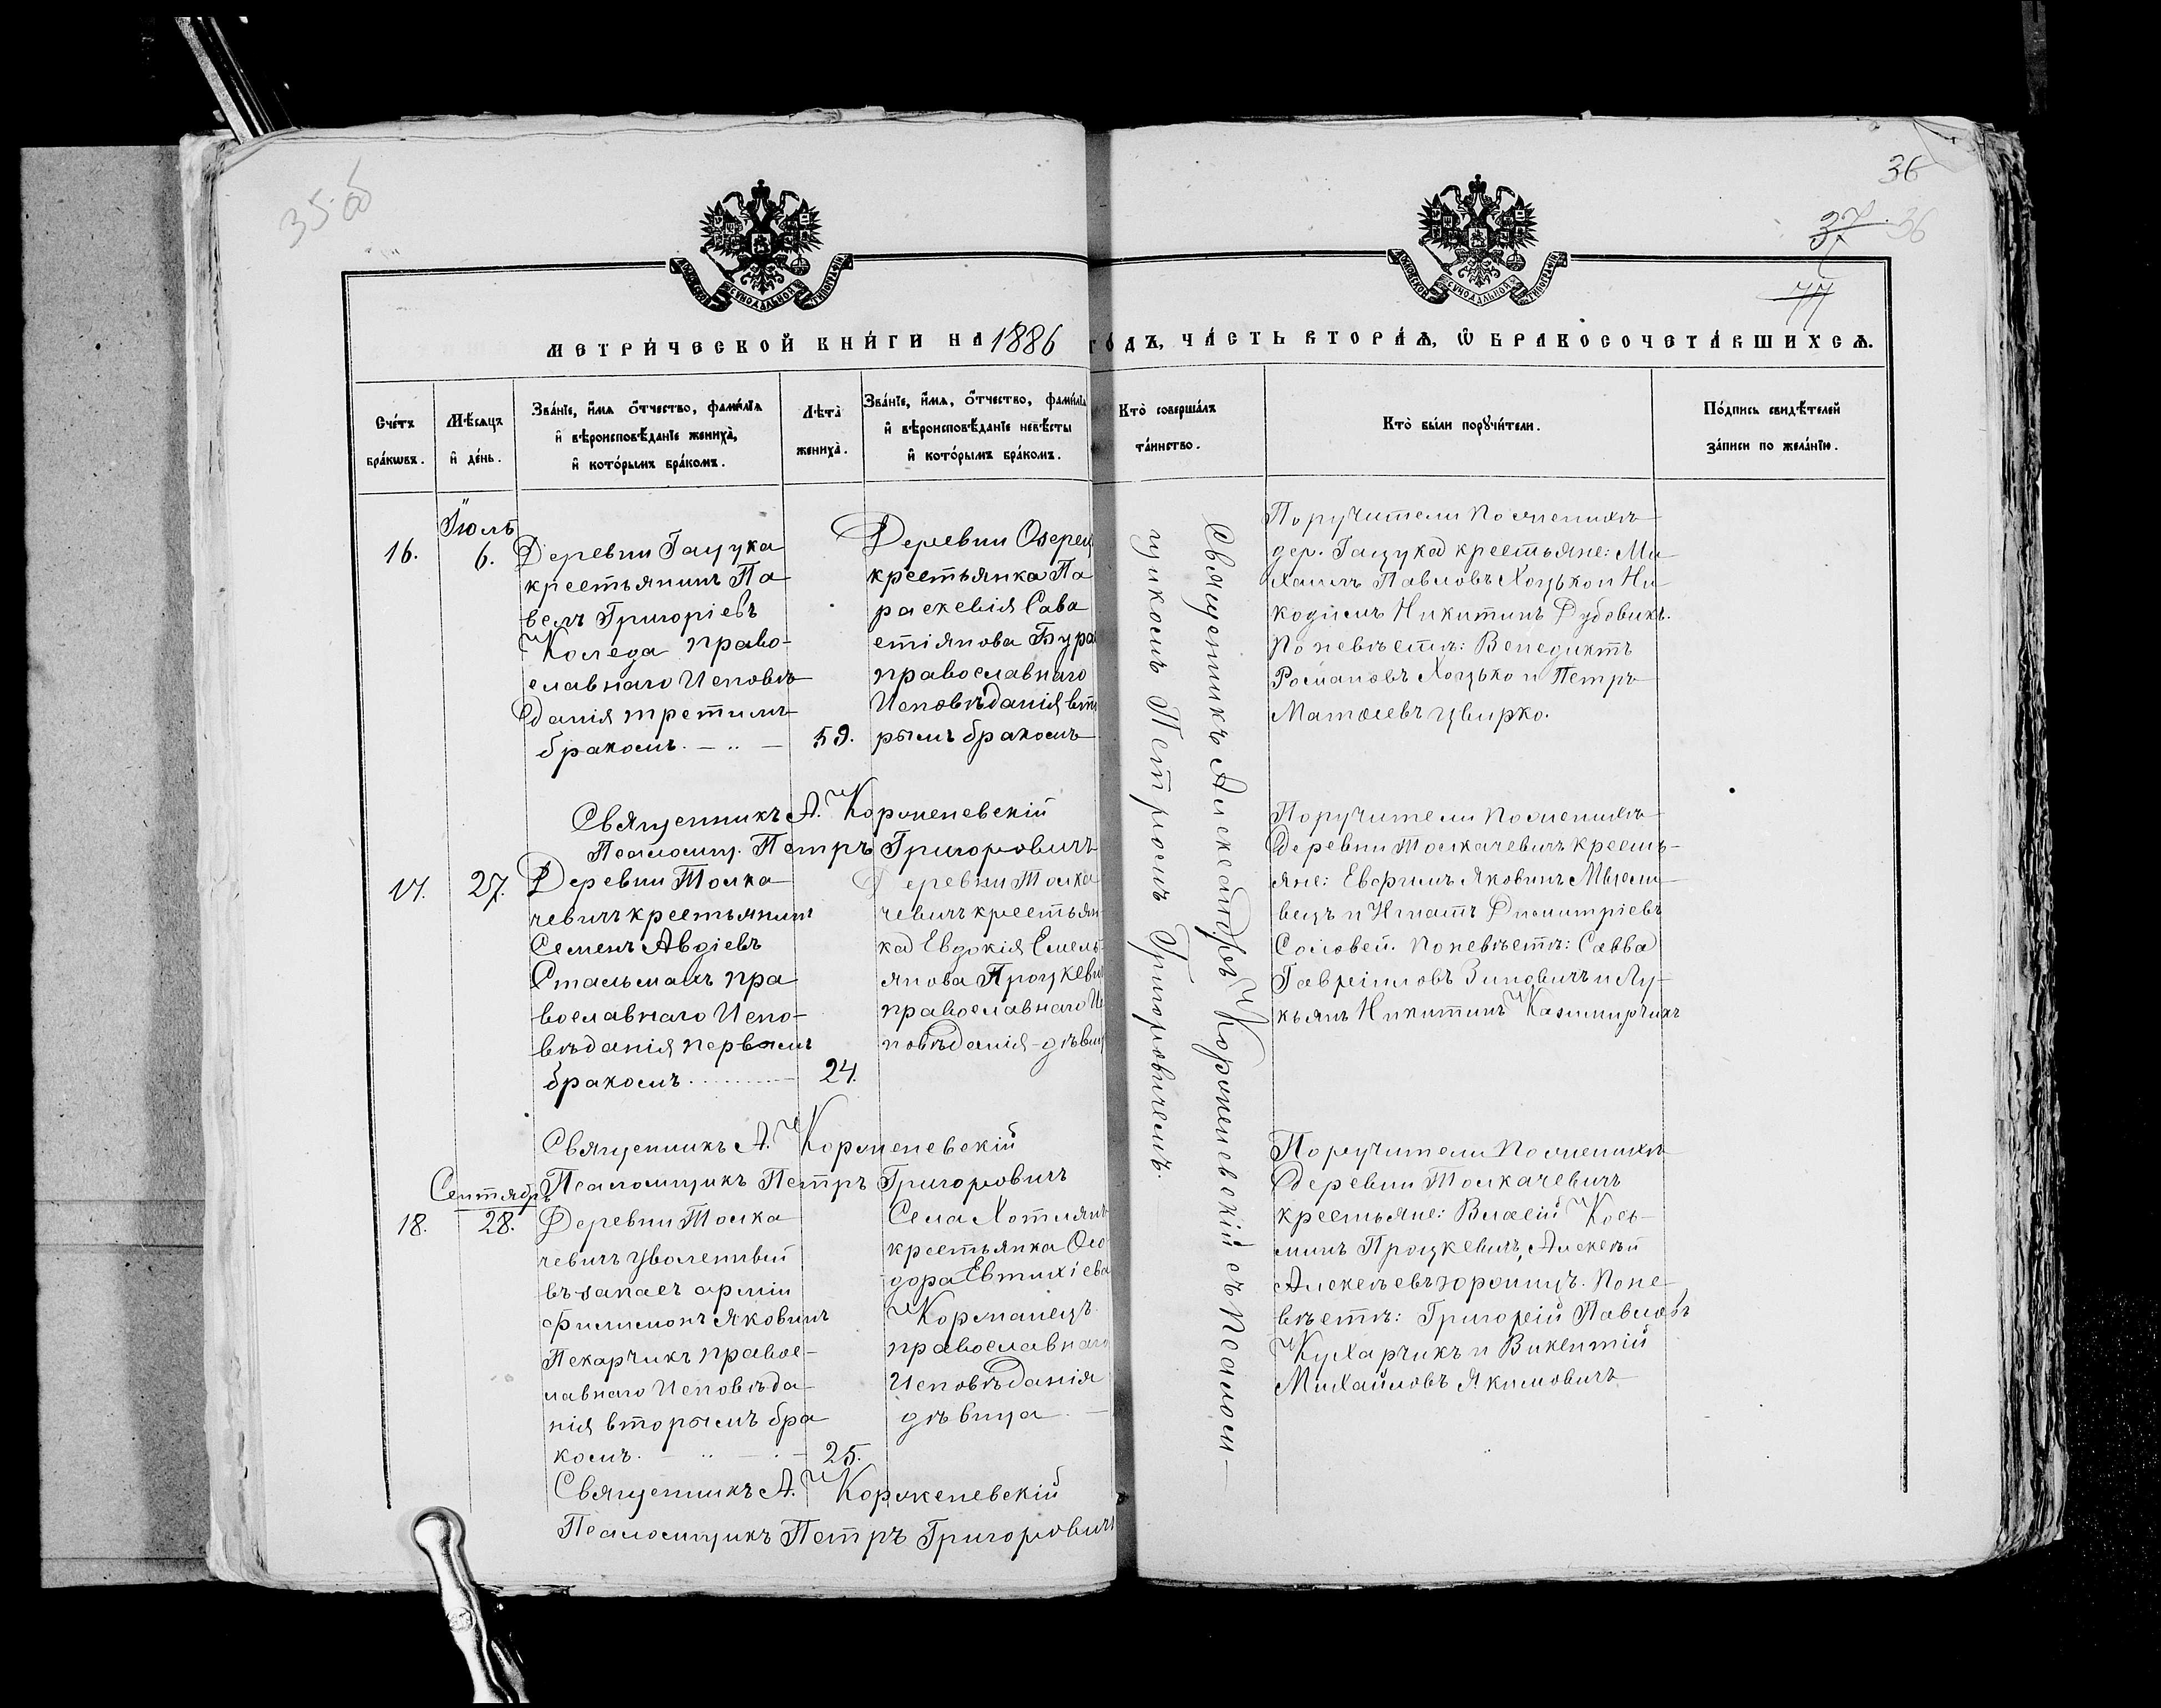 35 об
36
37 36
77
МЕТРИ́ЧЕСКОЙ КНИ́ГИ НА 1886 ГО́ДЪ, ЧА́СТЬ ВТОРА́Я, Ѡ҆ БРАКОСОЧЕТА́ВШИХСЯ.
Сче́тъ бра́кѡвъ.
Мѣ́сяцъ и҆ де́нь.
Зва́нїе, и҆́мя ѻ҆́тчество, фами́лїя и҆ вѣроисповѣ́данїе жениха̀, и҆ кото́рымъ бра́комъ.
Лѣта̀ жениха̀.
Зва́нїе, и҆́мя, ѻ҆́тчество, фами́лїя и҆ вѣроисповѣ́данїе невѣ́сты и҆ кото́рымъ бра́комъ.
Кто̀ соверша́лъ та́инство.
Кто̀ бы́ли порꙋчи́тели.
По́дпись свидѣ́телей за́писи по жела́нїю.
16.
Іюль
6.
Деревни Гацука
крестьянинъ Па
велъ Григоріевъ
Коледа право-
славнаго Исповѣ
данія третимъ
бракомъ.
59.
Деревни Озерец
крестьянка Па
раскевія Сава
стіянова Бура
православнаго
Исповѣданія вто
рымъ бракомъ
Поручители По женихѣ
дер. Гацука крестьяне: Ми
хаилъ Павловъ Хоцько и Ни
кодимъ Никитинъ Дубовикъ.
По невѣстѣ: Венедиктъ
Романовъ Хоцько и Петръ
Матѳеевъ Цвирко.
Священникъ А. Корженевскій
Псаломщ. Петръ Григоровичъ
17.
27.
Деревни Толка
чевичъ крестьянинъ
Семенъ Авдіевъ
Стальмахъ пра
вославнаго Испо-
вѣданія первымъ
бракомъ
24.
Деревни Толка
чевичъ крестьян
ка Евдокія Емель
янова Процкеви
православнаго Ис
повѣданія - дѣвиц
Поручители По женихѣ
деревни Толкачевичъ кресть-
яне: Евфимъ Яковинъ
и Игнатъ Димитріевъ
Соловей. По невѣстѣ: Савва
Гавріиловъ Зиновичъ и Лу-
кьянъ Никитинъ Казимирчикъ
Священникъ А. Корженевскій
Псаломщикъ Петръ Григоровичъ
18.
Сентябрь
28.
Деревни Толка
чевичъ уволенный
въ запасъ арміи
Филимонъ Яковинъ
Пекарчикъ правос-
лавнаго Исповѣда-
нія вторымъ бра
комъ.
25.
Села Хотлянъ
крестьянка Ѳео
дора Евтихіева
Корманецъ
православнаго
Исповѣданія
дѣвица
Поручители По женихѣ
деревни Толкачевичъ
крестьяне: Власій Кось-
минъ Процкевичъ, Алексѣй
Алексѣевъ Юрошицъ. По не-
вѣстѣ: Григорій Павловъ
Кухарчикъ и Викентій
Михайловъ Якимовичъ
Священникъ А. Корженевскій
Псаломщикъ Петръ Григоровичъ
Священникъ Александръ Корженевскій съ Псалом-
щикомъ Петромъ Григоровичемъ.